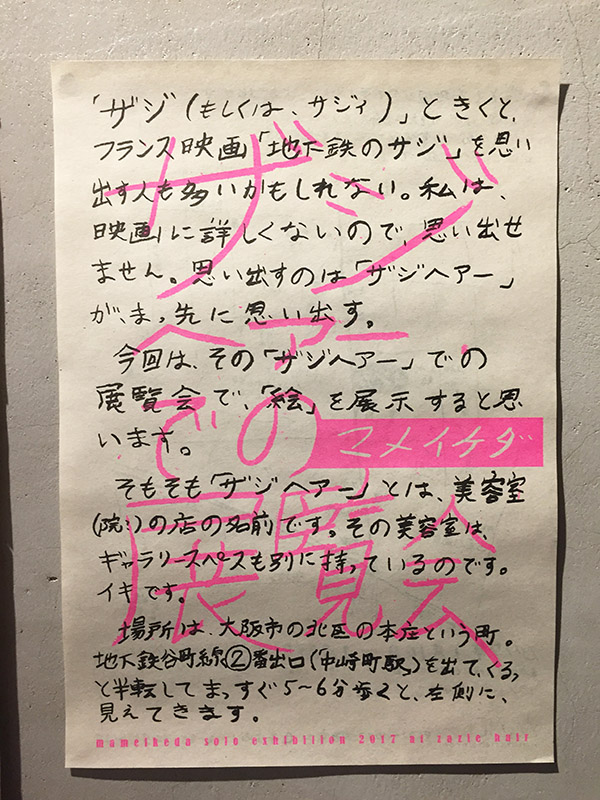 「ザジ(もしくは、サジィ)」ときくと、
フランス映画「地下鉄のサジ」を思い
出す人も多いかもしれない。私は、
映画に詳しくないので、思い出せ
ません。思い出すのは「ザジヘアー」
が、まっ先に思い出す。
今回は、その「ザジヘアー」での
展覧会で、「絵」を展示すると思
います。
そもそも「ザジヘアー」とは、美容室
(院?)の店の名前です。その美容室は、
ギャラリースペースも別に持っているのです。
イキです。
場所は、大阪市の北区の本庄という町。
地下鉄谷町線②番出口(「中崎町駅」)を出て、くるっ
と半転してまっすぐ5〜6分歩くと、左側に、
見えてきます。
ザジ
ヘアー
での
展覧会
マメイケダ
mameikeda solo exhibition 2017 at zazie hair